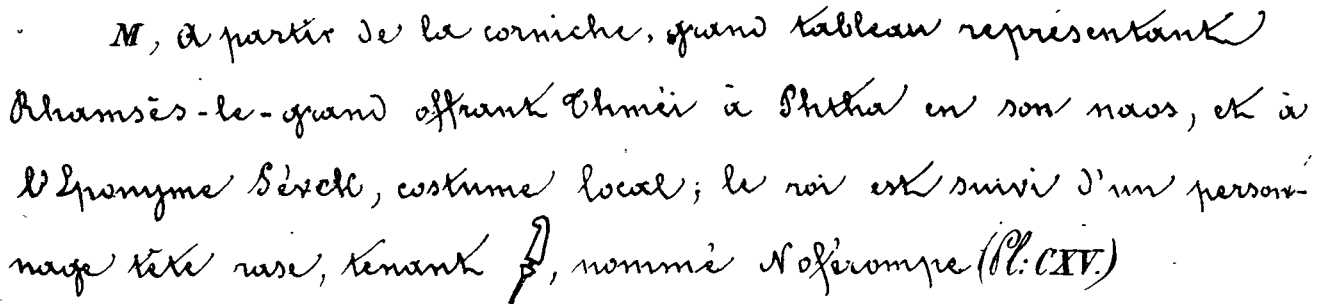 M, à partir de la corniche, grand tableau représentant
Rhamsès-le-grand offrant Thméi à Phtha en son naos, et à
l'Eponyme Sévek, costume local; le roi est suivi d'un person-
nage tête rase, tenant , nommé Noférompe (Pl: CXV.)